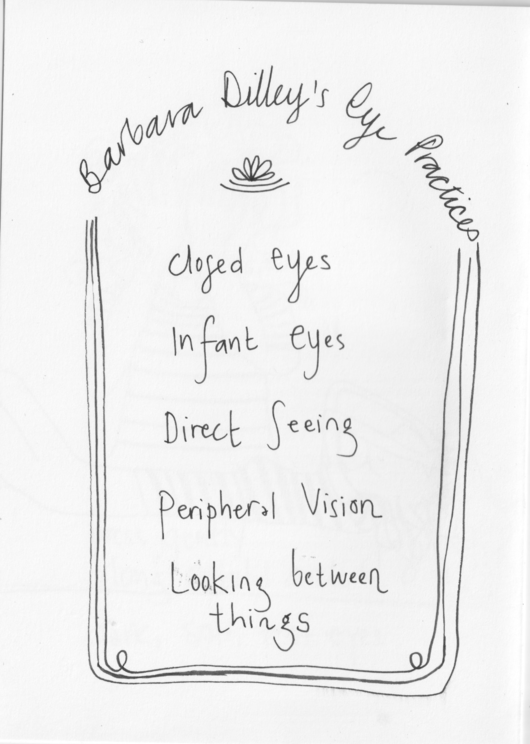 Barbara Dilley's Eye Practices
closed eyes
Infant eyes
Direct Seeing
Peripheral Vision
Looking between
things